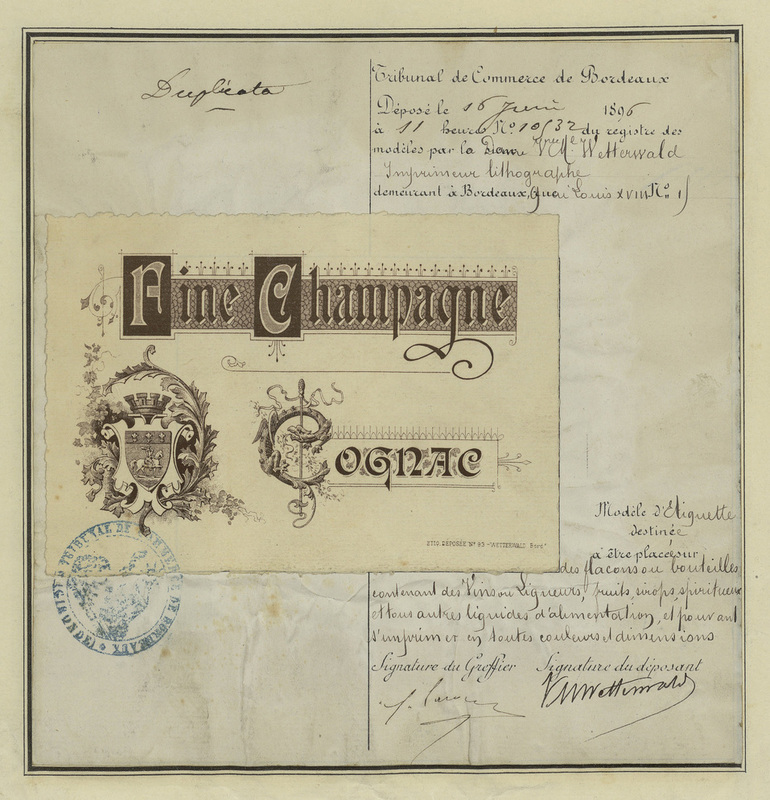 Duplicata
Tribunal de Commerce de Bordeaux
Déposé le 16 Juin 1896
à 11 heures Nº 10532 du registre des
modèles par la Dame Vve Wetterwald
Imprimeur lithographe
demeurant à Bordeaux, Quai Louis XVIII Nº 15
Fine Champagne
Cognac
ETIQ. DÉPOSÉE Nº 95 - WETTERWALD, Bordx
Modèle d'Etiquette
destinée
à être placée sur
des flacons ou bouteilles
contenant des Vins ou Liqueurs, fruits, sirops, spiritueux
et tous autres liquides d'alimentation, et pouvant
s'imprimer en toutes couleurs et dimensions
Signature du Greffier Signature du déposant
VM Wetterwald
TRIBUNAL DE COMMERCE DE BORDEAUX
(GIRONDE)